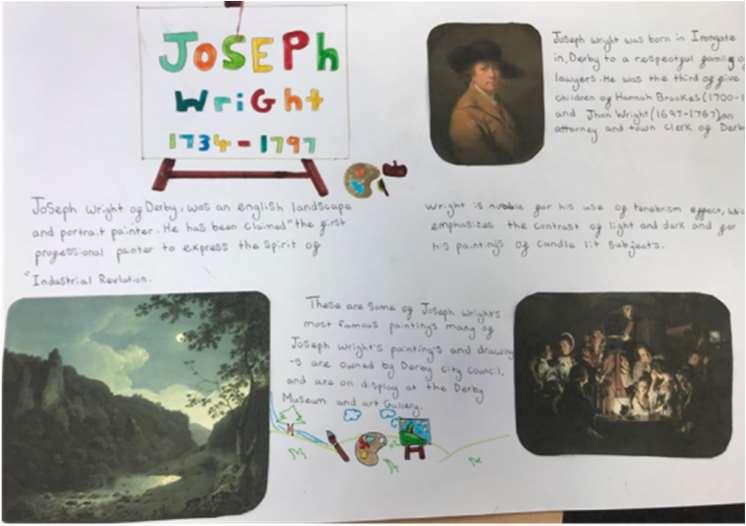 JOSEPH
WriGht
1734-1797
Joseph wright was born in Irongate
in, Derby to a respectful family of
lawyers. He was the third of five
children of Hannah Brookes (1700-1
and Jhon Wright (1697-1767) an
attorney and town clerk of Derb
Joseph Wright of Derby, was an english landscape
and portrait painter. He has been claimed "the first
professional painter to express the spirit of
"Industrial Revlution.
Wright is notable for his use of tenebrism effect,
emphasizes the contrast of light and dark and for
his painting's of candle lit subjects.
These are some of Joseph Wrights
most famous painting's many of
Joseph Wright's painting's and drawing
-s are owned by Derby city council,
and are on display at the Derby
Museum and art Gallery.